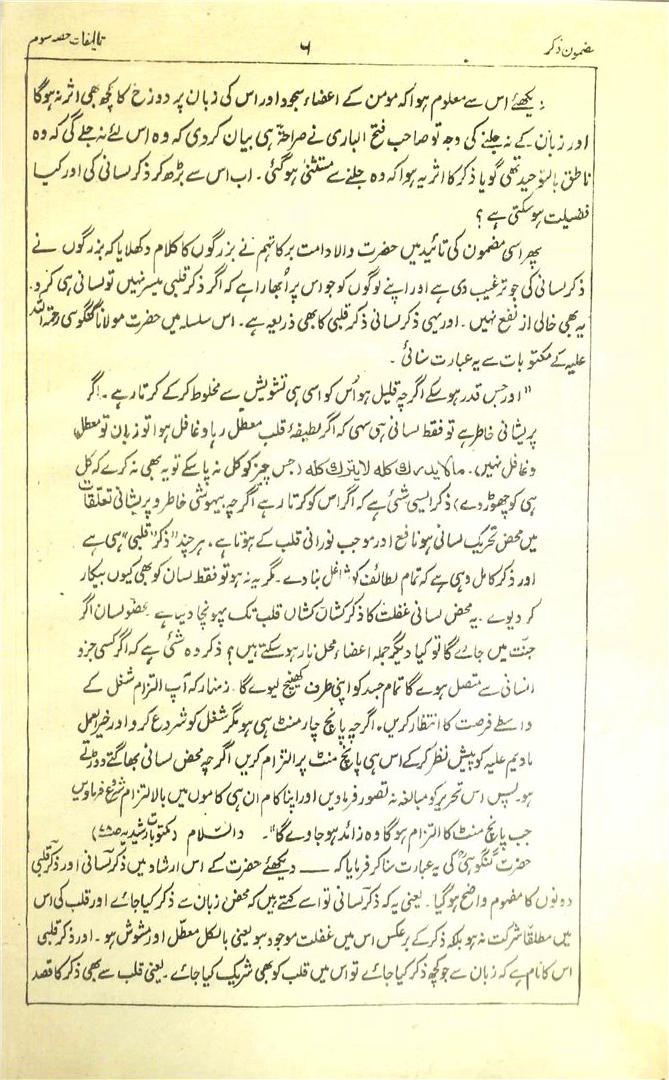 مضمون ذکر ۶ تالیفات حصہ سوم
دیکھئے اس سے معلوم ہوا کہ مومن کے اعضاء سجود اور اس کی زبان پر دوزخ کا کچھ بھی اثر نہ ہوگا
اور زبان کے نہ جلنے کی وجہ تو صاحب فتح الباری نے صراحۃً ہی بیان کردی کہ وہ اس لئے نہ جلے گی کہ وہ
ناطق بالتوحید تھی گویا ذکر کا اثر یہ ہوا کہ وہ جلنے سے مستثنیٰ ہوگئی ۔ اب اس سے بڑھ کر ذکر لسانی کی اور کیا
فضیلت ہوسکتی ہے ؟
پھر اسی مضمون کی تائید میں حضرت والا دامت برکاتہم نے بزرگوں کا کلام دکھلایا کہ بزرگوں نے
ذکر لسانی کی جو ترغیب دی ہے اور اپنے لوگوں کو جو اس پر اُبھارا ہے کہ اگر ذکر قلبی میسر نہیں تو لسانی ہی کرو.
یہ بھی خالی از نفع نہیں ۔ اور یہی ذکر لسانی ذکر قلبی کا بھی ذریعہ ہے۔ اس سلسلہ میں حضرت مولانا گنگوہی رحمۃ اللہ
علیہ کے مکتوبات سے یہ عبارت سنائی ۔
"اور جس قدر ہوسکے اگرچہ قلیل ہو اُس کو اسی ہی تشویش سے مخلوط کرکے کرتا رہے ۔ اگر
پریشانی خاطر ہے تو فقط لسانی ہی سہی کہ اگر لطیفۂ قلب معطل رہا و غافل ہوا تو زبان تو معطل
و غافل نہیں. مالا یدرک کلہ لا یترک کلہ (جس چیز کو کل نہ پاسکے تو یہ بھی نہ کرے کہ کل
ہی کو چھوڑ دے) ذکر ایسی شئی ہے کہ اگر اس کو کرتا رہے اگرچہ بیہوشی خاطر و پریشانی تعلقات
میں محض تحریک لسانی ہو نافع اور موجب نورانی قلب کے ہوتا ہے، ہر چند "ذکر قلبی" ہی ہے
اور ذکر کامل وہی ہے کہ تمام لطائف کو شاغل بنا دے۔ مگر یہ نہ ہو تو فقط لسان کو بھی کیوں بیکار
کر دیوے ۔ یہ محض لسانی غفلت کا ذکر کشاں کشاں قلب تک پہونچا دیتا ہے عضو لسان اگر
جنت میں جائے گا تو کیا دیگر جملہ اعضاء محل نار ہوسکتے ہیں؟ ذکر وہ شئی ہے کہ اگر کسی جزو
انسانی سے متصل ہووے گا تمام جسد کو اپنی طرف کھینچ لیوے گا. زنہار کہ آپ التزام شغل کے
واسطے فرصت کا انتظار کریں، اگرچہ پانچ چار منٹ ہی ہو مگر شغل کو شروع کرو اور خیر العمل
مادیم علیہ کو پیش نظر کرکے اس ہی پانچ منٹ پر التزام کریں اگرچہ محض لسانی بھاگتے دوڑتے
ہو۔ پس اس تحریر کو مبالغہ نہ تصور فرماویں اور اپنا کام ان ہی کاموں میں بالالتزام شروع فرماویں
جب پانچ منٹ کا التزام ہوگا وہ زائد ہوجاوے گا"۔ والسلام (مکتوبات رشیدیہ ص۷۸)
حضرت گنگوہیؒ کی یہ عبارت سنا کر فرمایا کہ — دیکھئے حضرت کے اس ارشاد میں ذکر لسانی اور ذکر قلبی
دونوں کا مفہوم واضح ہوگیا ۔ یعنی یہ کہ ذکر لسانی تو اسے کہتے ہیں کہ محض زبان سے ذکر کیا جائے اور قلب کی اس
میں مطلقاً شرکت نہ ہو بلکہ ذکر کے برعکس اس میں غفلت موجود ہو یعنی بالکل معطل اور مشوش ہو ۔ اور ذکر قلبی
اس کا نام ہے کہ زبان سے جو کچھ ذکر کیا جائے تو اس میں قلب کو بھی شریک کیا جائے یعنی قلب سے بھی ذکر کا قصد